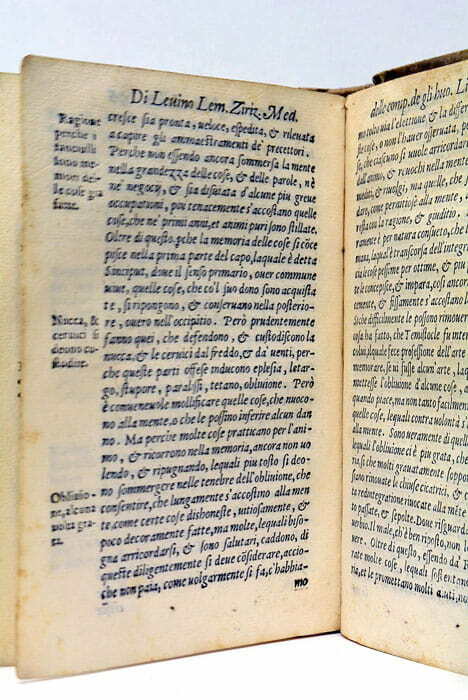 Di Leuino Lem. Ziriz. Med.
Ragione
perche i
fanciulli
sono me
mori del
le cose pas
sate.
cresce sia pronta, veloce, espedita, & rileuata
a capire gli ammaestramenti de' precettori.
Perche non essendo ancora sommersa la mente
nella grandezza delle cose, & delle parole, nè
ne' negocy, & sia disuiata d'alcune piu greue
occupationi, pou tenacemente s'accostano quelle
cose, che ne' primi anni, et animi puri sono stillate.
Oltre di questo. pche la memoria delle cose si cōce
pisce nella prima parte del capo, laquale è detta
Sinciput, doue il senso primario, ouer commune
uiue, quelle cose, che co'l suo dono sono acquista
te, si ripongono, & conseruano nella posterio-
re, ouero nell'occipitio. Però prudentemente
Nucca, &
ceruici si
deono cu-
stodire.
fanno quei, che defendono, & custodiscono la
nucca, & le ceruici dal freddo, & da' uenti, per-
che queste parti offese inducono eplesia, letar-
go, stupore, paralisi, tetano, obliuione. Però
è conueneuole mollificare quelle cose, che nuoco-
no alla mente, o che le possino inferire alcun dan
no. Ma perche molte cose pratticano per l'ani
mo, & ricorrono nella memoria, ancora non uo
lendo, & ripugnando, lequali piu tosto si deo-
no sommergere nelle tenebre dell'obliuione, che
Obliuio-
ne, alcuna
uolta gra-
ta.
consentire, che lungamente s'accostino alla men
te, come certe cose dishoneste, uitiosamente, &
poco decoramente fatte, ma molte, lequali biso-
gna arricordarsi, & sono salutari, caddono, di
queste diligentemente si deue cōsiderare, accio-
che non paia, come uolgarmente si fa, c'habbia-
mo
delle comp. de gli huo. Li
mo tolto uia l'elettione & la differe
ste cose, o non l'hauer osseruata, per
si, che ciascuno si uuole arricordare
alla mente,
sta con la ragione, & giuditio.
ramente è per natura consueto, che l
mali, laqual transcorsa dell'integr
cia le cose pessime per ottime, & piu
cie concepisce, & impara, cosi ancor
cemente, & fissamente s'accostano
Che difficilmente le possono rimouer
cosa ha fatto, che Temistocle fu inter
colui, laquale fece professione dell'arte
memorare, se mai fusse un'arte, laqua
mettesse l'obliuione d'alcune cose,
quando piace, ma non tanto facilmen
quelle cose, lequali contra uolontà s'
alla mente. Sono ueramente di quelle
lequali l'obliuione ci è piu grata, che
ria, si che molti grauatamente soppor
che rinouate le chiuse cicatrici, & l
ta redintegratione riuocate alla mēte
to passate, & sepolte. Doue risguarda
uerbio. Il male, ch'è ben riposto, non l
uere. Oltre di questo, essendo da'
rate molte cose, lequali sost'entano
ria, et le promettano molti aiuti, no